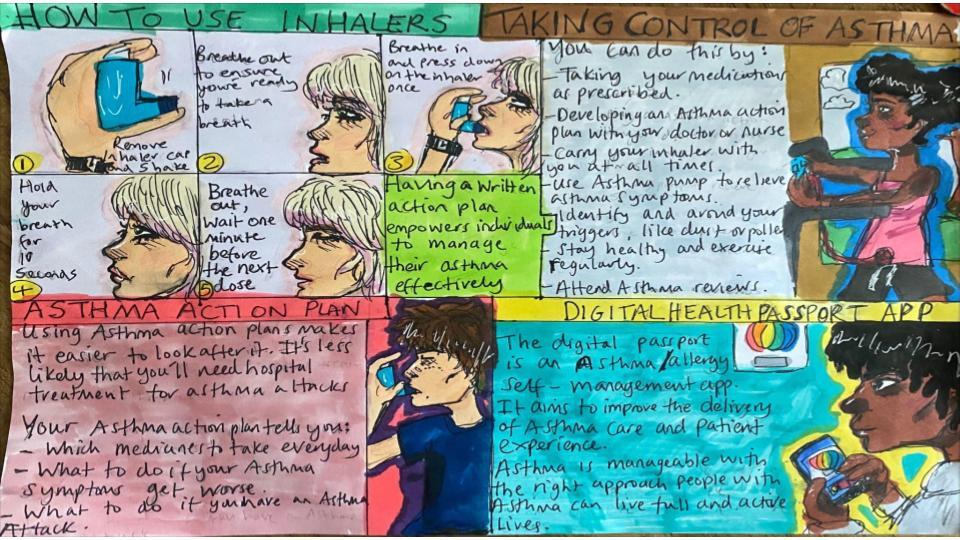 HOW TO USE INHALERS
1
Remove
inhaler cap
and shake
2
Breathe out
to ensure
you're ready
to take a
breath
3
Breathe in
and press down
on the inhaler
once
4
Hold
your
breath
for
10
seconds
5
Breathe
out,
wait one
minute
before
the next
dose
Having a written
action plan
empowers individuals
to manage
their asthma
effectively
TAKING CONTROL OF ASTHMA
You can do this by:
- Taking your medications
as prescribed.
- Developing an Asthma action
plan with your doctor or nurse
- Carry your inhaler with
you at all times.
- Use Asthma pump to relieve
asthma symptoms.
- Identify and avoid your
triggers, like dust or pollen
- Stay healthy and exercise
regularly.
- Attend Asthma reviews.
ASTHMA ACTION PLAN
Using Asthma action plans makes
it easier to look after it. It's less
likely that you'll need hospital
treatment for asthma attacks
Your Asthma action plan tells you:
- Which medicines to take everyday
- What to do if your Asthma
symptoms get worse
- What to do if you have an Asthma
Attack.
DIGITAL HEALTH PASSPORT APP
The digital passport
is an Asthma/allergy
self-management app.
It aims to improve the delivery
of Asthma care and patient
experience.
Asthma is manageable with
the right approach people with
Asthma can live full and active
lives.